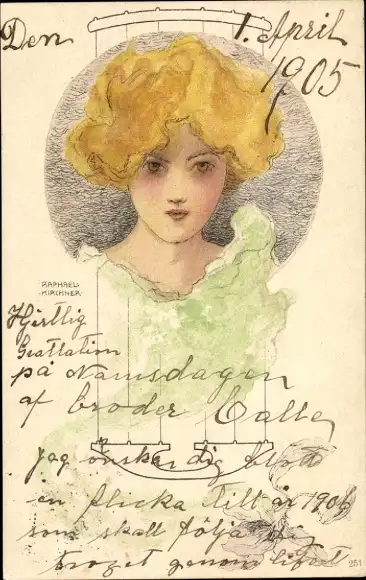 Den 1. April
1905
RAPHAEL
KIRCHNER
Hjertlig
Grattation
på Namsdagen
af broder Calle
jag önskar dig blott
en flicka Till år 1906
som skall följa dig
troget genom lifvet
251